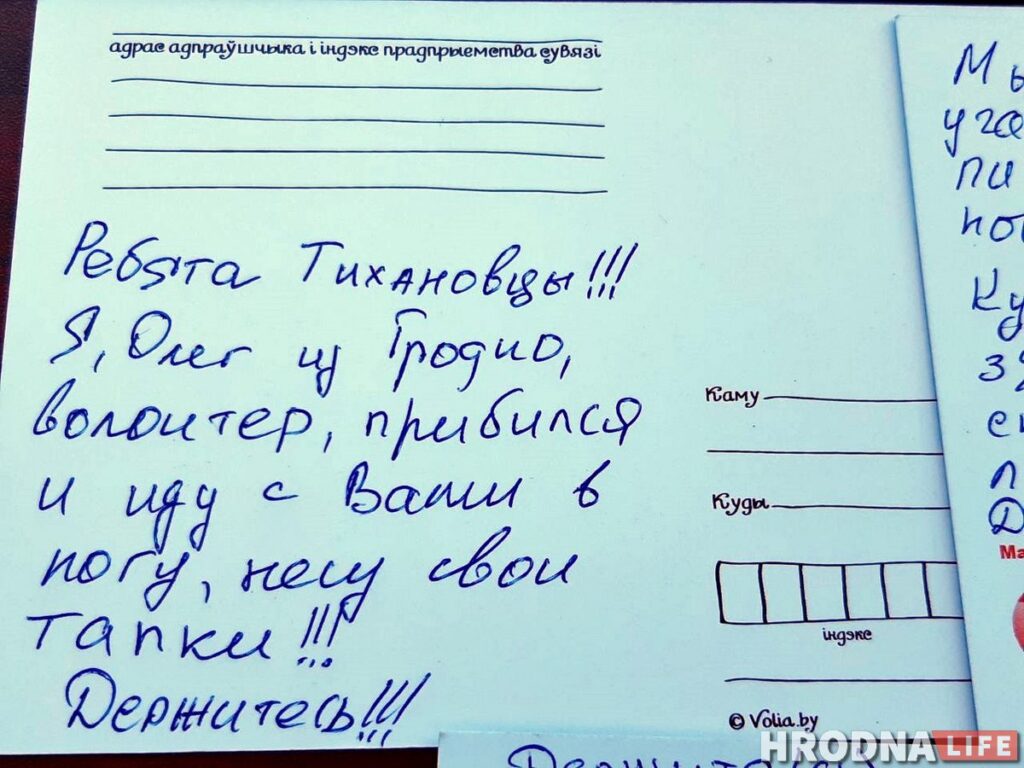 адрас адпраўшчыка і індэкс прадпрыемства сувязі
Ребята Тихановцы!!!
Я, Олег из Гродно,
волонтер, прибился
и иду с Вами в
ногу, несу свои
тапки!!!
Держитесь!!!
Каму
Куды
індэкс
© Volia.by
Мы
уга
пи
Ку
Д
Ма
HRODNA LIFE